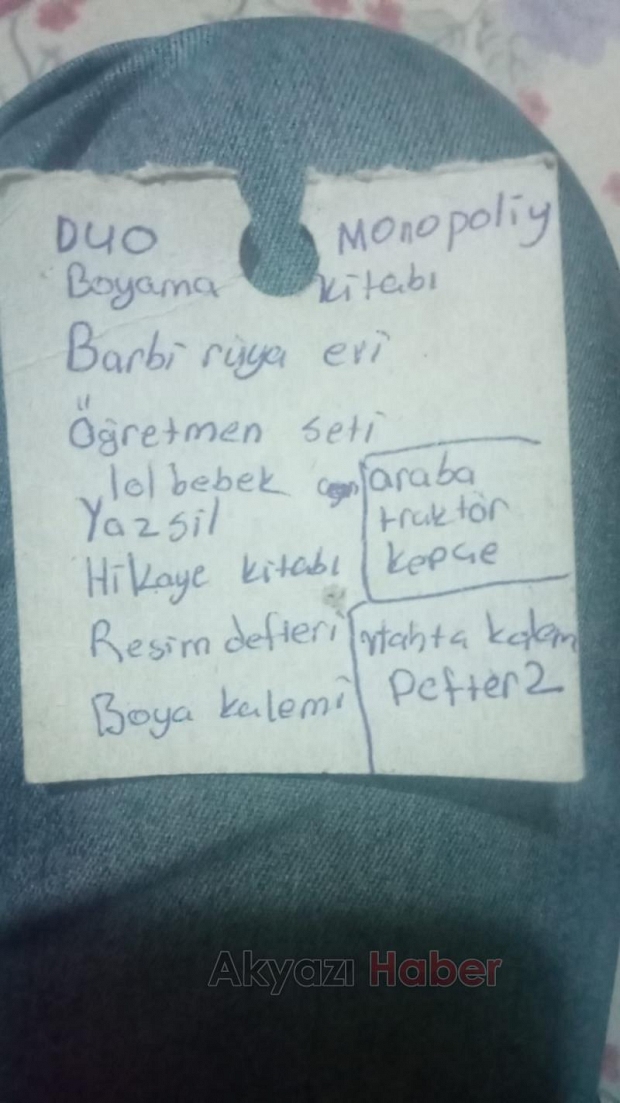 DUO Monopoliy
Boyama kitabı
Barbi rüya evi
Öğretmen seti
lol bebek
Yazsil
Hikaye kitabı
Resim defteri
Boya kalemi
araba
traktör
kepçe
tahta kalem
Defter 2
Akyazı Haber